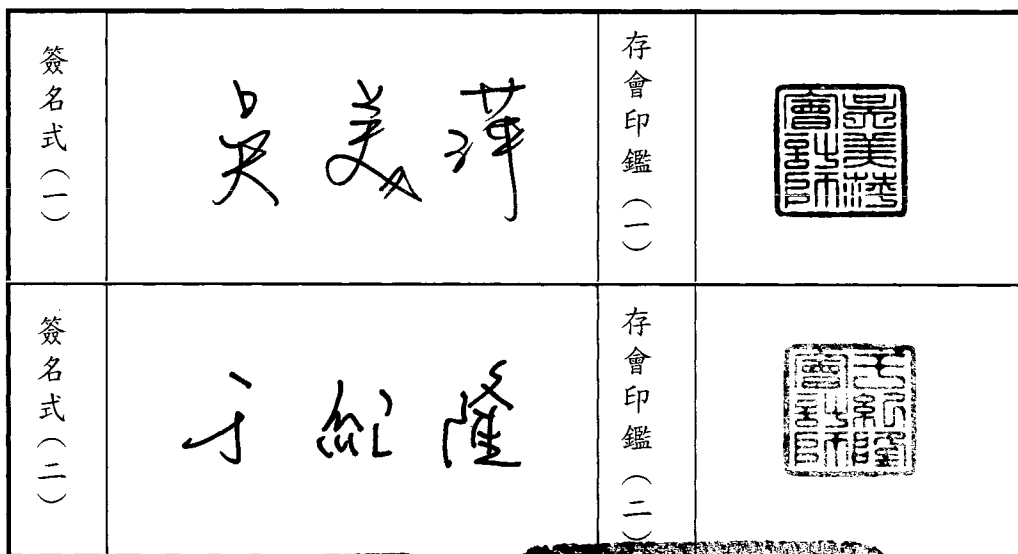 簽名式(一)
吳美萍
存會印鑑(一)
吳美萍會計師
簽名式(二)
于紀隆
存會印鑑(二)
于紀隆會計師